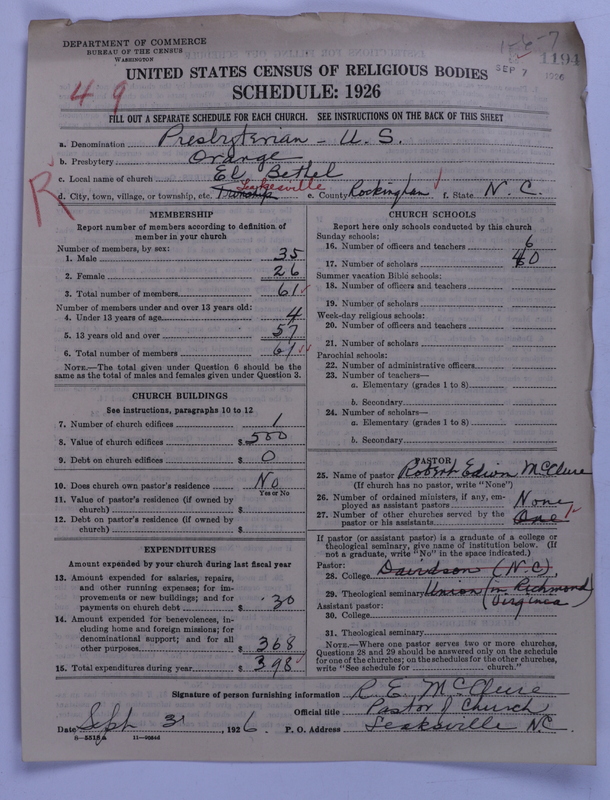 DEPARTMENT OF COMMERCE
BUREAU OF THE CENSUS
WASHINGTON
1194
SEP 7 1926
49
UNITED STATES CENSUS OF RELIGIOUS BODIES
SCHEDULE: 1926
FILL OUT A SEPARATE SCHEDULE FOR EACH CHURCH. SEE INSTRUCTIONS ON THE BACK OF THIS SHEET
R
a. Denomination Presbyterian - U. S.
b. Presbytery Orange
c. Local name of church El Bethel
d. City, town, village, or township, etc. Township Leaksville e. County Rockingham f. State N. C.
MEMBERSHIP
Report number of members according to definition of member in your church
Number of members, by sex:
1. Male 35
2. Female 26
3. Total number of members 61
Number of members under and over 13 years old:
4. Under 13 years of age 4
5. 13 years old and over 57
6. Total number of members 61
NOTE.—The total given under Question 6 should be the same as the total of males and females given under Question 3.
CHURCH BUILDINGS
See instructions, paragraphs 10 to 12
7. Number of church edifices 1
8. Value of church edifices $ 500
9. Debt on church edifices $ 0
10. Does church own pastor's residence No
Yes or No
11. Value of pastor's residence (if owned by church) $
12. Debt on pastor's residence (if owned by church) $
EXPENDITURES
Amount expended by your church during last fiscal year
13. Amount expended for salaries, repairs, and other running expenses; for improvements or new buildings; and for payments on church debt $ 30
14. Amount expended for benevolences, including home and foreign missions; for denominational support; and for all other purposes $ 368
15. Total expenditures during year $ 398
CHURCH SCHOOLS
Report here only schools conducted by this church
Sunday schools:
16. Number of officers and teachers 6
17. Number of scholars 60
Summer vacation Bible schools:
18. Number of officers and teachers
19. Number of scholars
Week-day religious schools:
20. Number of officers and teachers
21. Number of scholars
Parochial schools:
22. Number of administrative officers
23. Number of teachers—
a. Elementary (grades 1 to 8)
b. Secondary
24. Number of scholars—
a. Elementary (grades 1 to 8)
b. Secondary
PASTOR
25. Name of pastor Robert Edwin McClure
(If church has no pastor, write "None")
26. Number of ordained ministers, if any, employed as assistant pastors None
27. Number of other churches served by the pastor or his assistants One
If pastor (or assistant pastor) is a graduate of a college or theological seminary, give name of institution below. (If not a graduate, write "No" in the space indicated.)
Pastor:
28. College Davidson (N.C)
29. Theological seminary Union (in Richmond Virginia)
Assistant pastor:
30. College
31. Theological seminary
NOTE.—Where one pastor serves two or more churches, Questions 28 and 29 should be answered only on the schedule for one of the churches; on the schedules for the other churches, write "See schedule for church."
Signature of person furnishing information R. E. McClure
Official title Pastor of Church
Date Sept 3, 1926. P. O. Address Leaksville N.C.
8-5518a 11-9084d